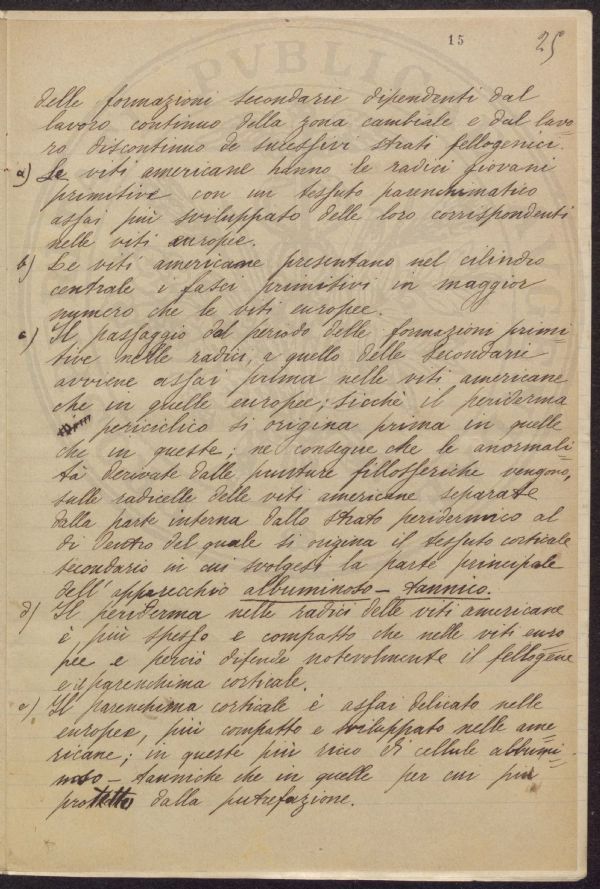 PVBLIC
15
25
delle formazioni secondarie dipendenti dal
lavoro continuo della zona cambiale e dal lavo-
ro discontinuo de sucessivi strati fellogenici.
a) Le viti americane hanno le radici giovani
primitive con un tessuto parenchimatico
assai più sviluppato delle loro corrispondenti
nelle viti europee.
b) Le viti americane presentano nel cilindro
centrale i fasci primitivi in maggior
numero che le viti europee.
c) Il passaggio dal periodo delle formazioni primi-
tive nelle radici, a quello delle secondarie
avviene assai prima nelle viti americane
che in quelle europee; sicchè il periderma
periciclico si origina prima in quelle
che in queste; ne consegue che le anormali-
tà derivate dalle punture fillosseriche vengono,
sulle radicelle delle viti americane separate
dalla parte interna dallo strato peridermico al
di dentro del quale si origina il tessuto corticale
secondario in cui svolgesi la parte principale
dell'apparecchio albuminoso-tannico.
d) Il periderma nelle radici delle viti americane
è più spesso e compatto che nelle viti euro
pee e perciò difende notevolmente il fellogène
e il parenchima corticale.
e) Il parenchima corticale è assai delicato nelle
europee, più compatto e sviluppato nelle ame-
ricane; in queste più ricco di cellule albumi-
noso-tanniche che in quelle per cui più
protetto dalla putrefazione.